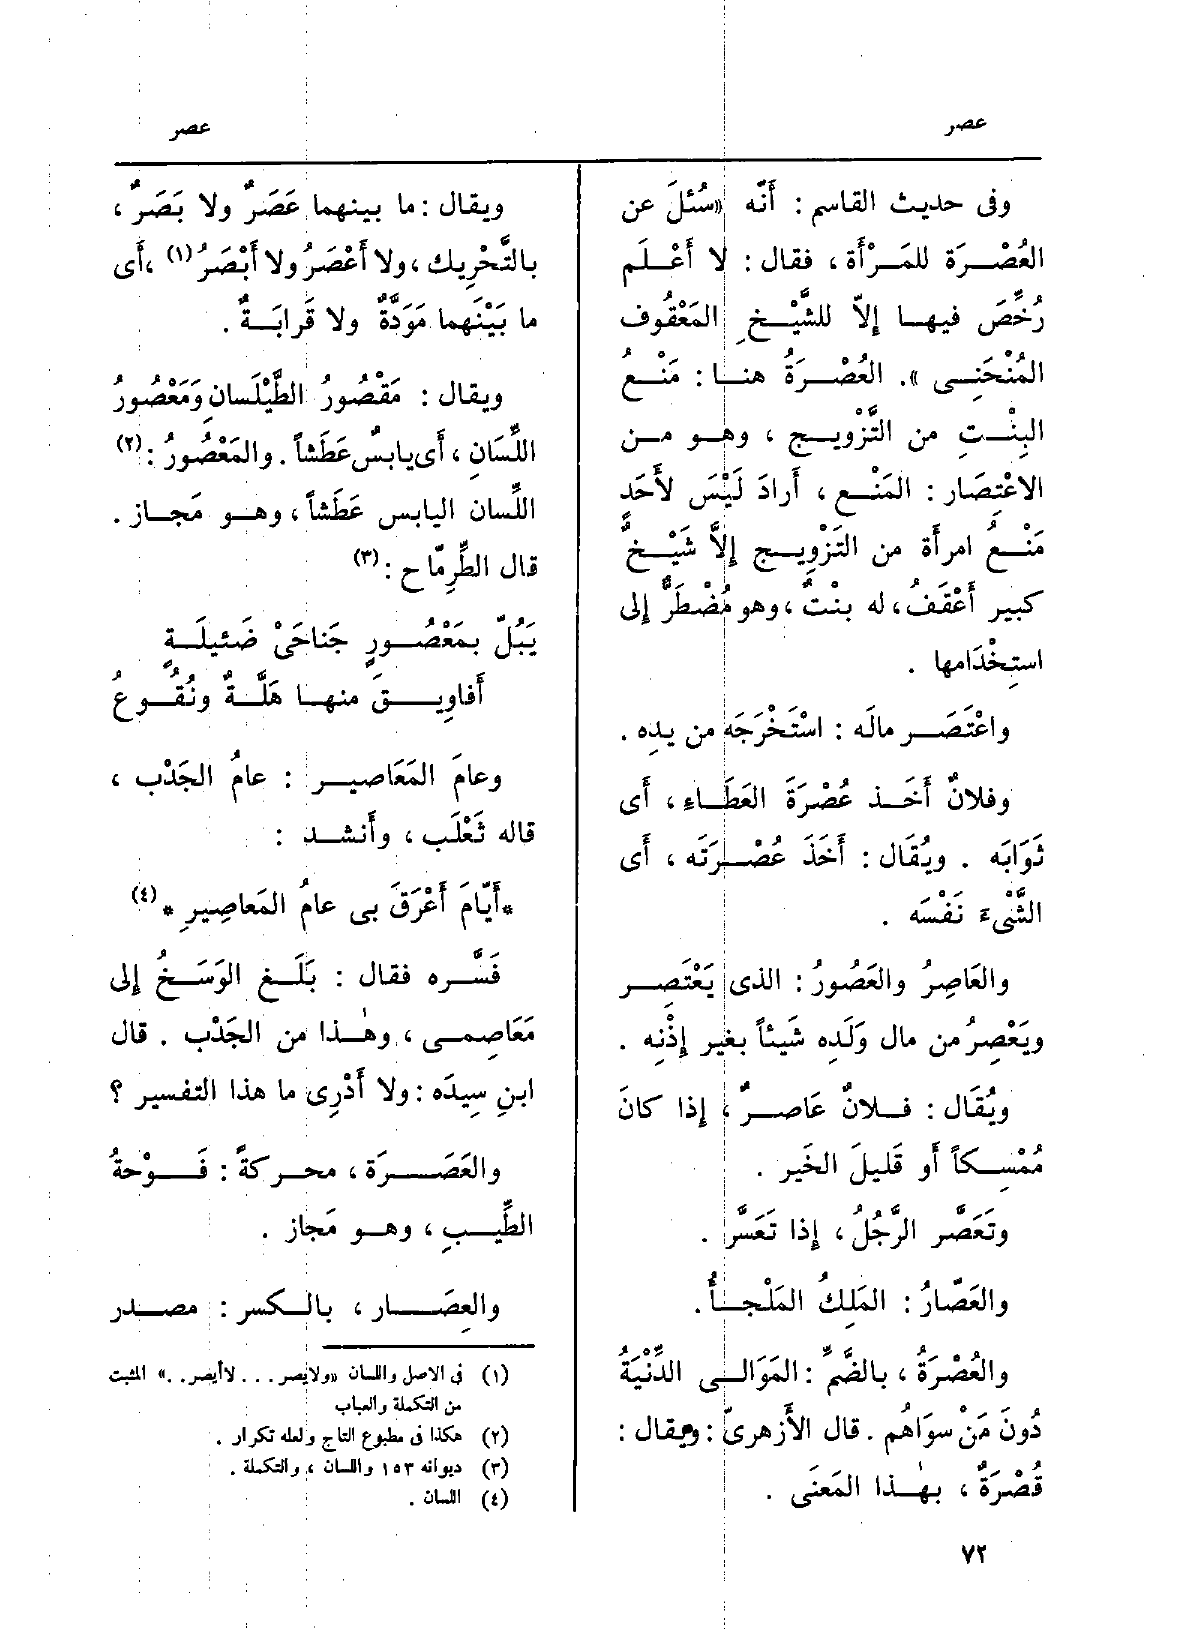 عصر
عصر
وفى حديث القاسم : أَنّه «سُئلَ عن
العُصْرَة للمَرْأَة ، فقال : لا أَعْلَم
رُخِّصَ فيها إِلاّ للشَّيْخِ المَعْقُوف
المُنْحَنِى ». العُصْرَةُ هنا : مَنْعُ
البِنْتِ من التَّزْويج ، وهو من
الاعْتِصَار : المَنْع ، أَرادَ لَيْسَ لأَحَدٍ
مَنْعُ امرأَة من التَزْوِيج إِلاَّ شَيْخٌ
كبير أَعْقَفُ ، له بنْتٌ ، وهو مُضْطَرٌّ إلى
استِخْدَامها .
واعْتَصَر مالَه : اسْتَخْرَجَه من يدِه .
وفلانٌ أَخَذ عُصْرَةَ العَطَاءِ ، أَى
ثَوَابَه . ويُقَال : أَخَذَ عُصْرَتَه ، أَى
الشَّىْءَ نَفْسَه .
والعَاصِرُ والعَصُورُ : الذى يَعْتَصِر
ويَعْصِرُ من مال وَلَدِه شَيئاً بغير إِذْنِه .
ويُقَال : فلانٌ عَاصرٌ ، إِذا كانَ
مُمْسِكاً أَو قَلِيلَ الخَير .
وتَعَصَّر الرَّجُلُ ، إِذا تَعَسَّر .
والعَصّارُ : المَلِكُ المَلْجأُ .
والعُصْرَةُ ، بالضَّمِّ : المَوَالى الدِّنْيَةُ
دُونَ مَنْ سوَاهُم . قال الأَزهرىّ : ويقال :
قُصْرَةٌ ، بهٰذا المَعنَى .
ويقال : ما بينهما عَصَرٌ ولا بَصَرٌ ،
بالتَّحْرِيك ، ولا أَعْصَرُ ولا أَبْصَرُ (١) ، أَى
ما بَيْنَهما مَوَدَّةٌ ولا قَرابَةٌ .
ويقال : مَقْصُورُ الطَّيْلَسانِ وَمَعْصُورُ
اللِّسَانِ ، أَى يابسٌ عَطَشاً . والمَعْصُورُ : (٢)
اللِّسان اليابس عَطَشاً ، وهو مَجاز .
قال الطِّرِمّاح : (٣)
يَبُلّ بمَعْصُورٍ جَناحَىْ ضَئيلَةٍ
أَفاوِيقَ منها هَلَّةٌ ونُقُوعُ
وعامَ المَعَاصير : عامُ الجَدْب ،
قاله ثَعْلَب ، وأَنشد :
* أَيّامَ أَعْرَقَ بى عامُ المَعاصِيرِ * (٤)
فَسَّره فقال : بَلَغ الوَسَخُ إلى
مَعَاصِمى ، وهٰذا من الجَدْب . قال
ابنِ سِيدَه : ولا أَدْرِى ما هذا التفسير ؟
والعَصَرَة ، محركةً : فَوْحةُ
الطِّيبِ ، وهو مَجاز .
والعِصَار ، بالكسر : مصدر
(١) فى الاصل واللسان «ولايصر... لاأيصر..» المثبت
من التكملة والعباب
(٢) هكذا فى مطبوع التاج ولعله تكرار .
(٣) ديوانه ١٥٣ واللسان ، والتكملة .
(٤) اللسان .
٧٢